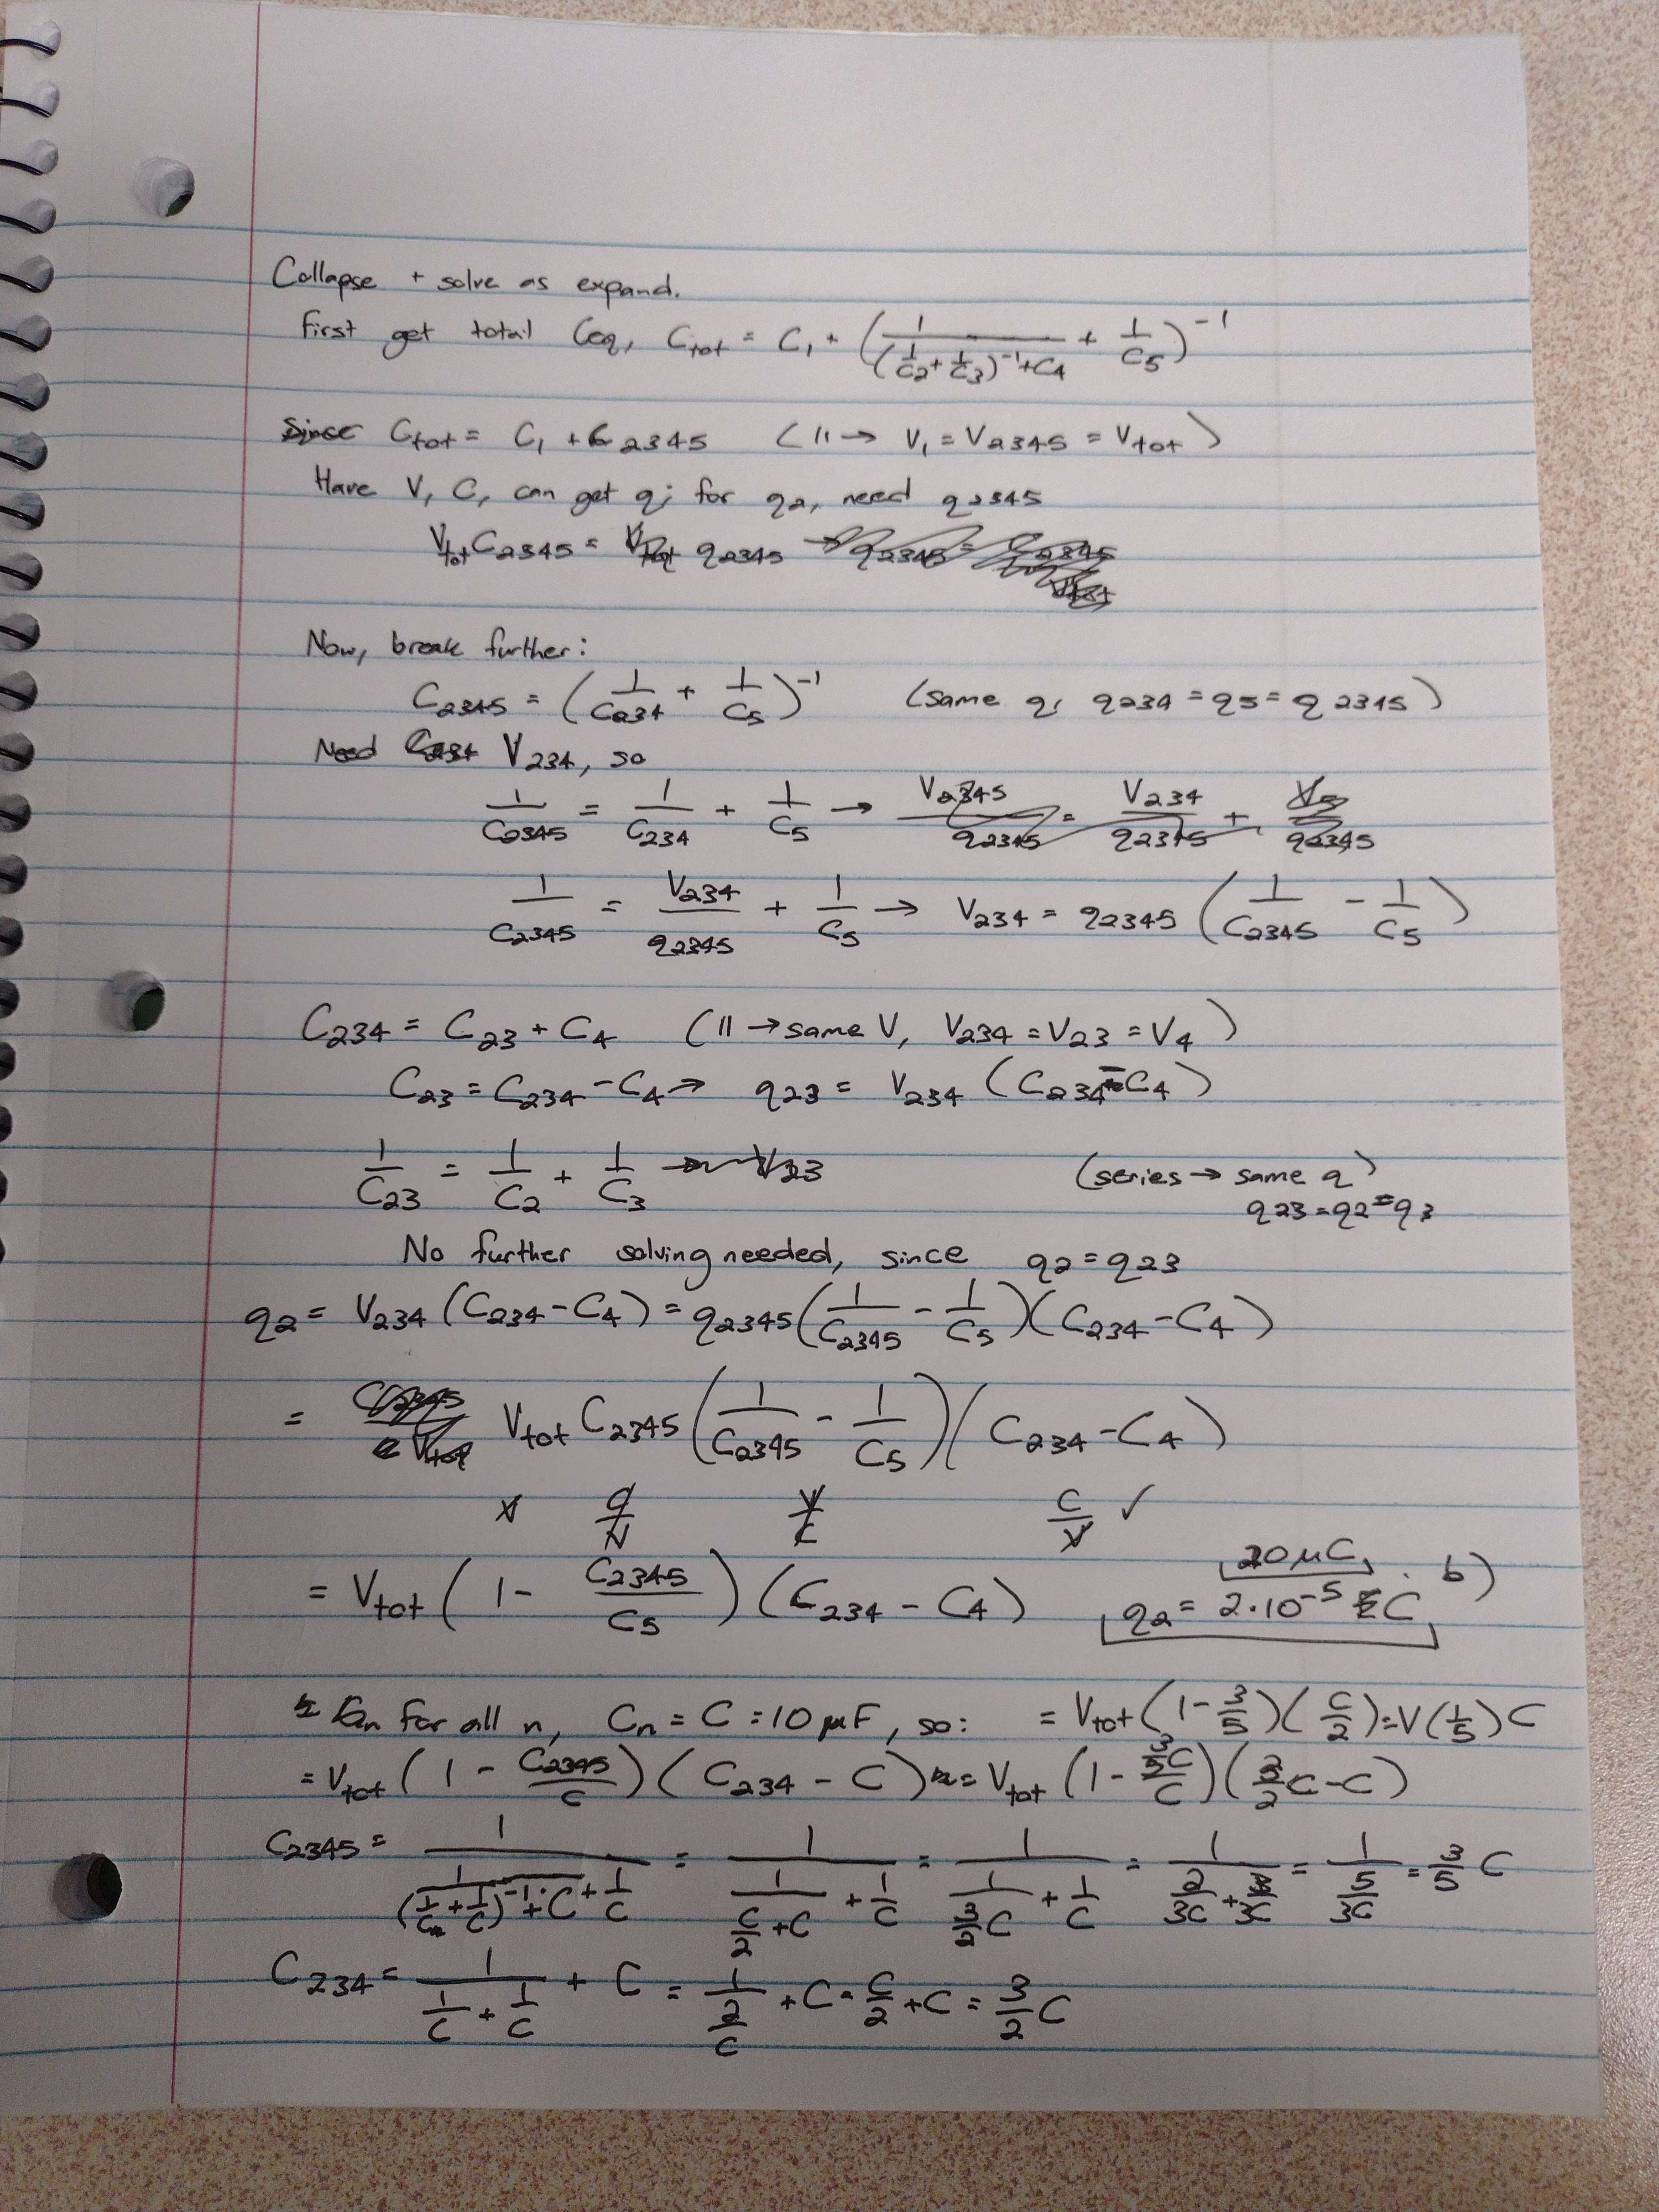 Collapse + solve as expand.
First get total Ceq, Ctot = C1 + (1/((1/C2 + 1/C3)^-1 + C4) + 1/C5)^-1
Since Ctot = C1 + C2345 (|| → V1 = V2345 = Vtot)
Have V, C, can get q; for q2, need q2345
Vtot C2345 = q2345
Now, break further:
C2345 = (1/C234 + 1/C5)^-1 (same q, q234 = q5 = q2345)
Need V234, so
1/C2345 = 1/C234 + 1/C5 → V2345/q2345 = V234/q2345 + V5/q2345
1/C2345 = V234/q2345 + 1/C5 → V234 = q2345 (1/C2345 - 1/C5)
C234 = C23 + C4 (|| → same V, V234 = V23 = V4)
C23 = C234 - C4 → q23 = V234 (C234 - C4)
1/C23 = 1/C2 + 1/C3 → V23 (series → same q)
q23 = q2 = q3
No further solving needed, since q2 = q23
q2 = V234 (C234 - C4) = q2345 (1/C2345 - 1/C5)(C234 - C4)
= Vtot C2345 (1/C2345 - 1/C5)(C234 - C4)
V C/V V/C C/V ✓
20 μC b)
= Vtot (1 - C2345/C5)(C234 - C4) q2 = 2·10^-5 C
for all n, Cn = C = 10 μF, so: = Vtot (1 - 3/5)(C/2) = V(1/5)C
= Vtot (1 - C2345/C)(C234 - C) = Vtot (1 - 3/5C/C)(3/2 C - C)
C2345 = 1/(1/((1/C + 1/C)^-1 + C) + 1/C) = 1/(1/(C/2 + C) + 1/C) = 1/(1/(3/2 C) + 1/C) = 1/(2/3C + 3/3C) = 1/(5/3C) = 3/5 C
C234 = 1/(1/C + 1/C) + C = 1/(2/C) + C = C/2 + C = 3/2 C